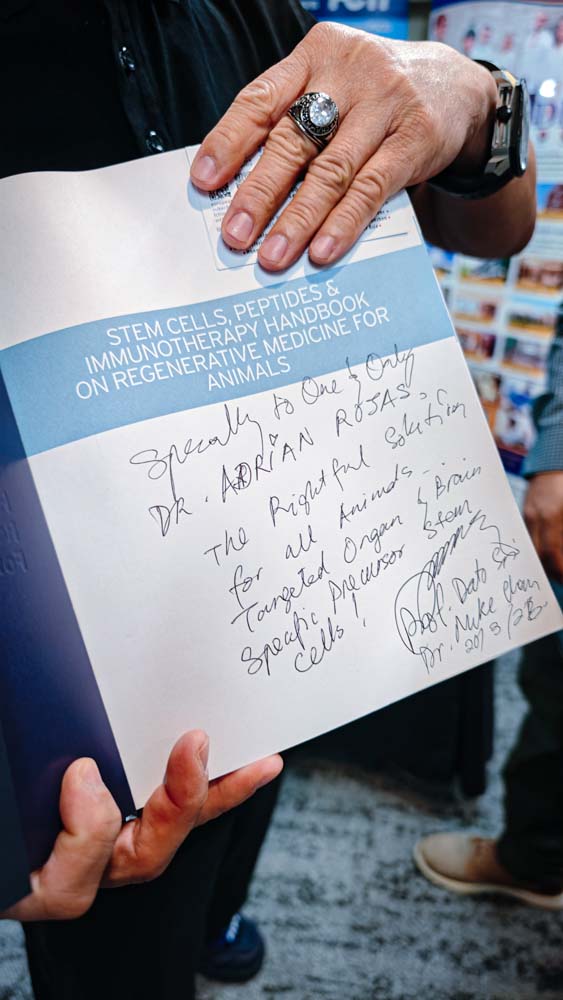 STEM CELLS, PEPTIDES &
IMMUNOTHERAPY HANDBOOK
ON REGENERATIVE MEDICINE FOR
ANIMALS
Specially to One & Only
DR. ADRIAN ROJAS.
The Rightful Solution
for all Animals..
Targeted Organ & Brain
Specific Precursor Stem
cells!
Prof. Dato Sri
Dr. Mike Chan